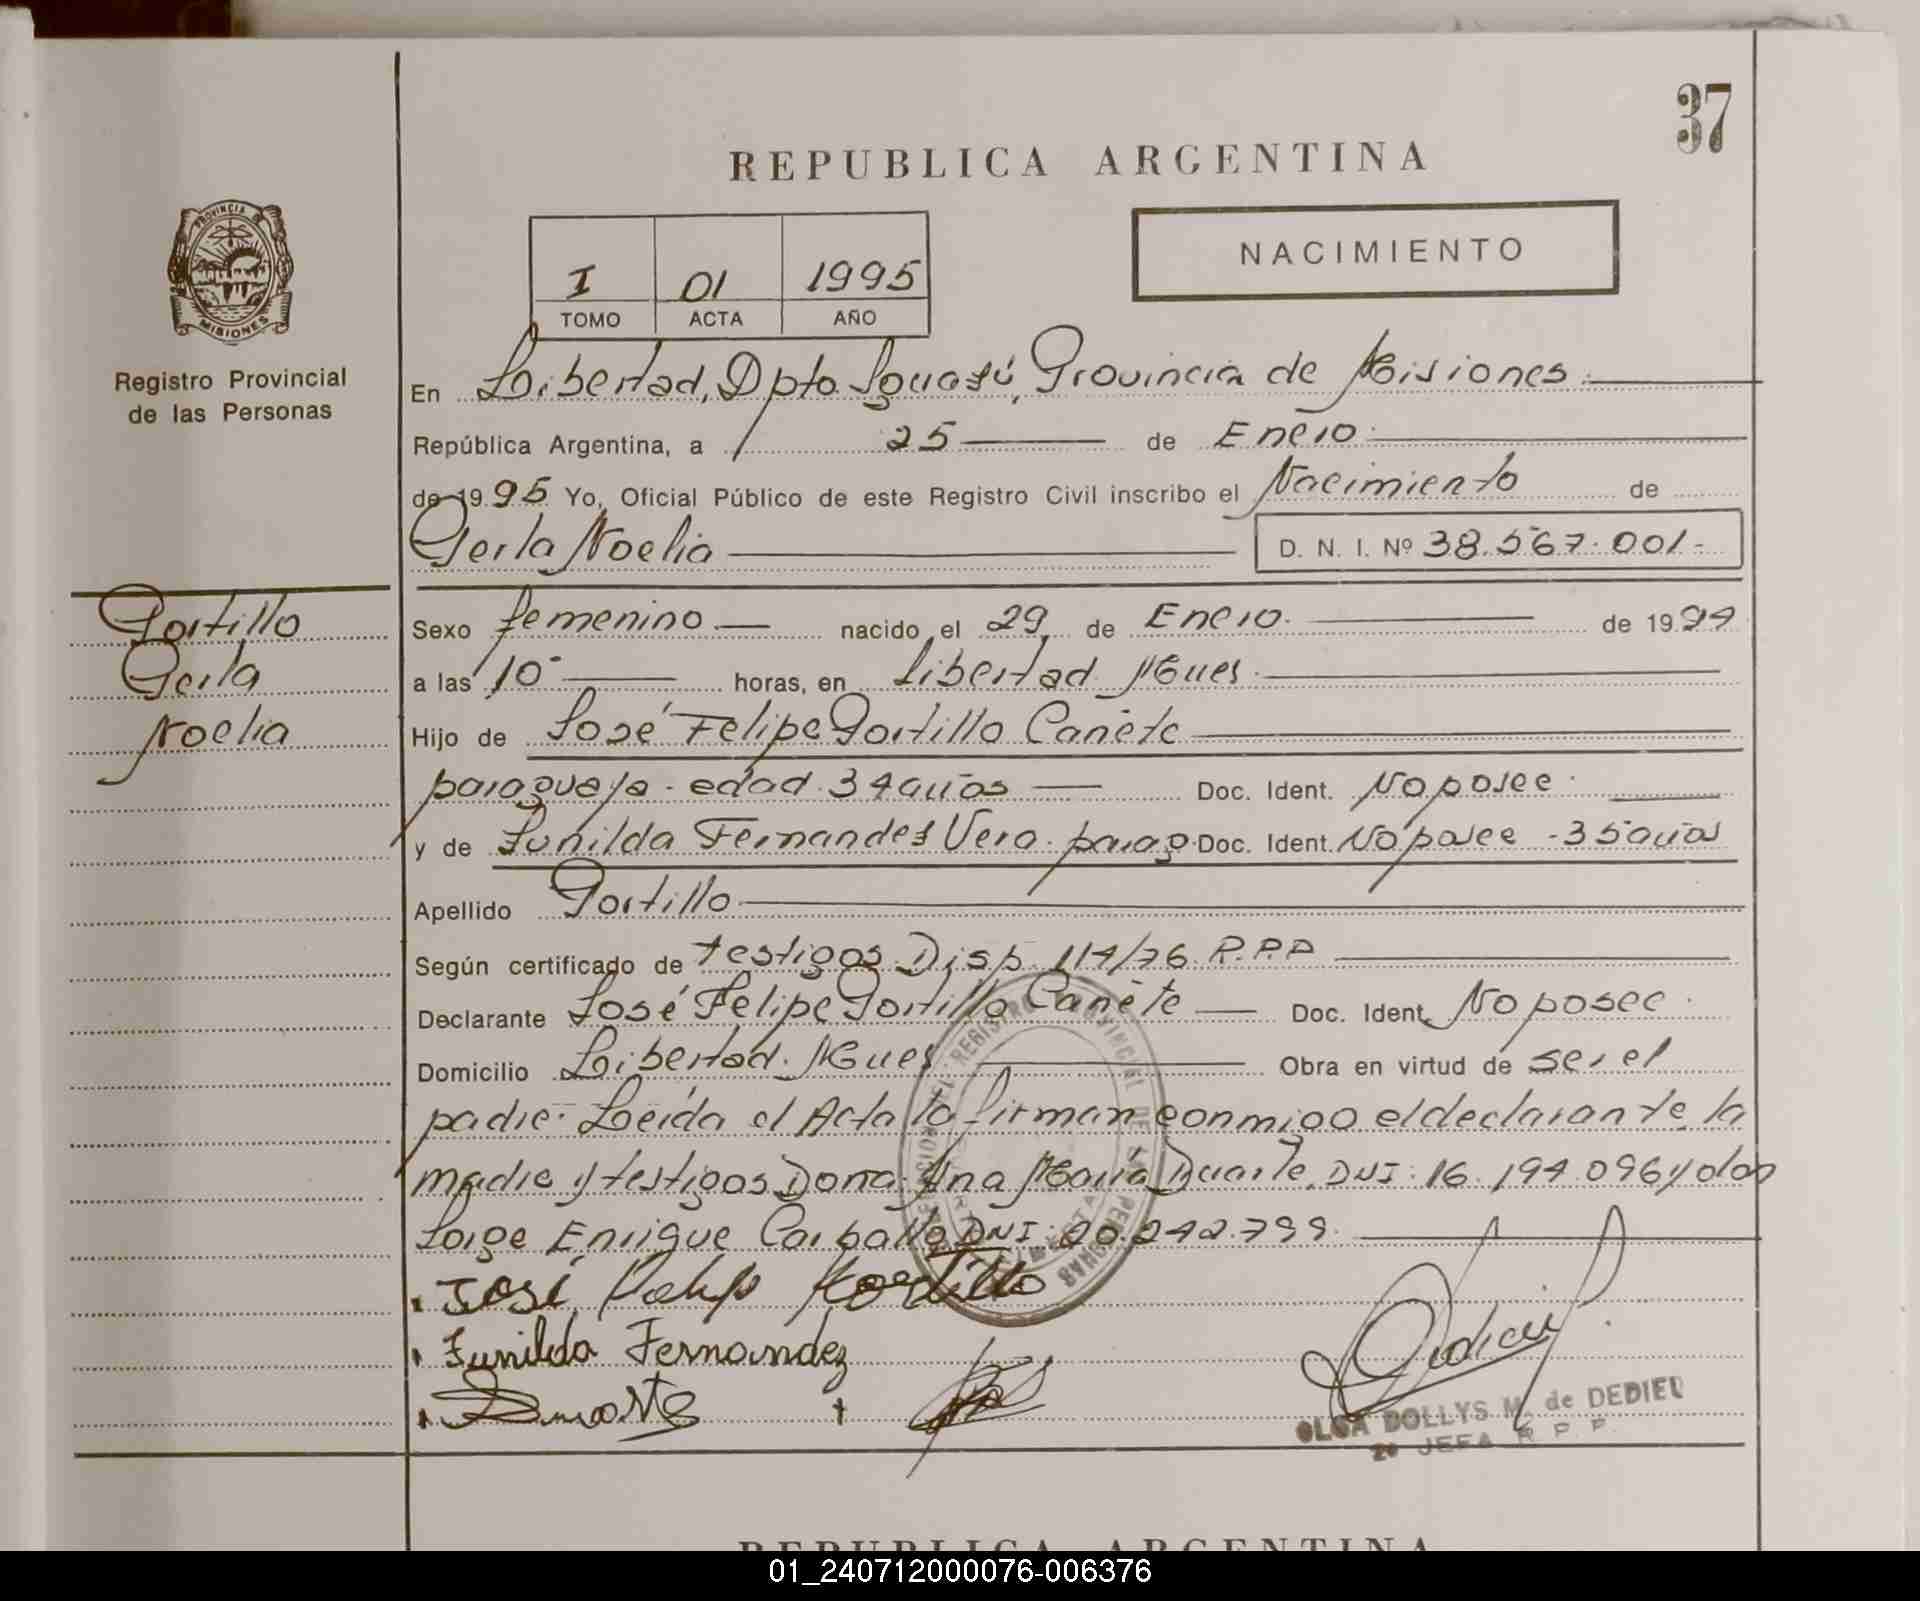 37
REPUBLICA ARGENTINA
PROVINCIA DE
MISIONES
I 01 1995
TOMO ACTA AÑO
NACIMIENTO
Registro Provincial
de las Personas
En Libertad, Dpto Iguazú, Provincia de Misiones.
República Argentina, a 25 de Enero.
de 1995 Yo, Oficial Público de este Registro Civil inscribo el Nacimiento de
Perla Noelia D. N. I. Nº 38.567.001.-
Portillo
Perla
Noelia
Sexo femenino. nacido el 29 de Enero. de 1994
a las 10 horas, en Libertad Mnes.
Hijo de José Felipe Portillo Cañete
paraguayo - edad 34 años Doc. Ident. No posee.
y de Lunilda Fernandez Vera. parag. Doc. Ident. No posee - 35 años
Apellido Portillo
Según certificado de testigos Disp. 114/76 R.P.P
Declarante José Felipe Portillo Cañete Doc. Ident. No posee.
Domicilio Libertad. Mnes Obra en virtud de ser el
padre. Leída el Acta la firman conmigo el declarante, la
madre y testigos Doña Ana María Duarte, DNI: 16.194.096 y don
Jorge Enrique Carballo DNI: 20.242.799.
José Felip Portillo
Lunilda Fernandez
Duarte
OLGA DOLLYS M. de DEDIEU
2º JEFA R P P.
REGISTRO PROVINCIAL DE LAS PERSONAS
REPUBLICA ARGENTINA
01_240712000076-006376